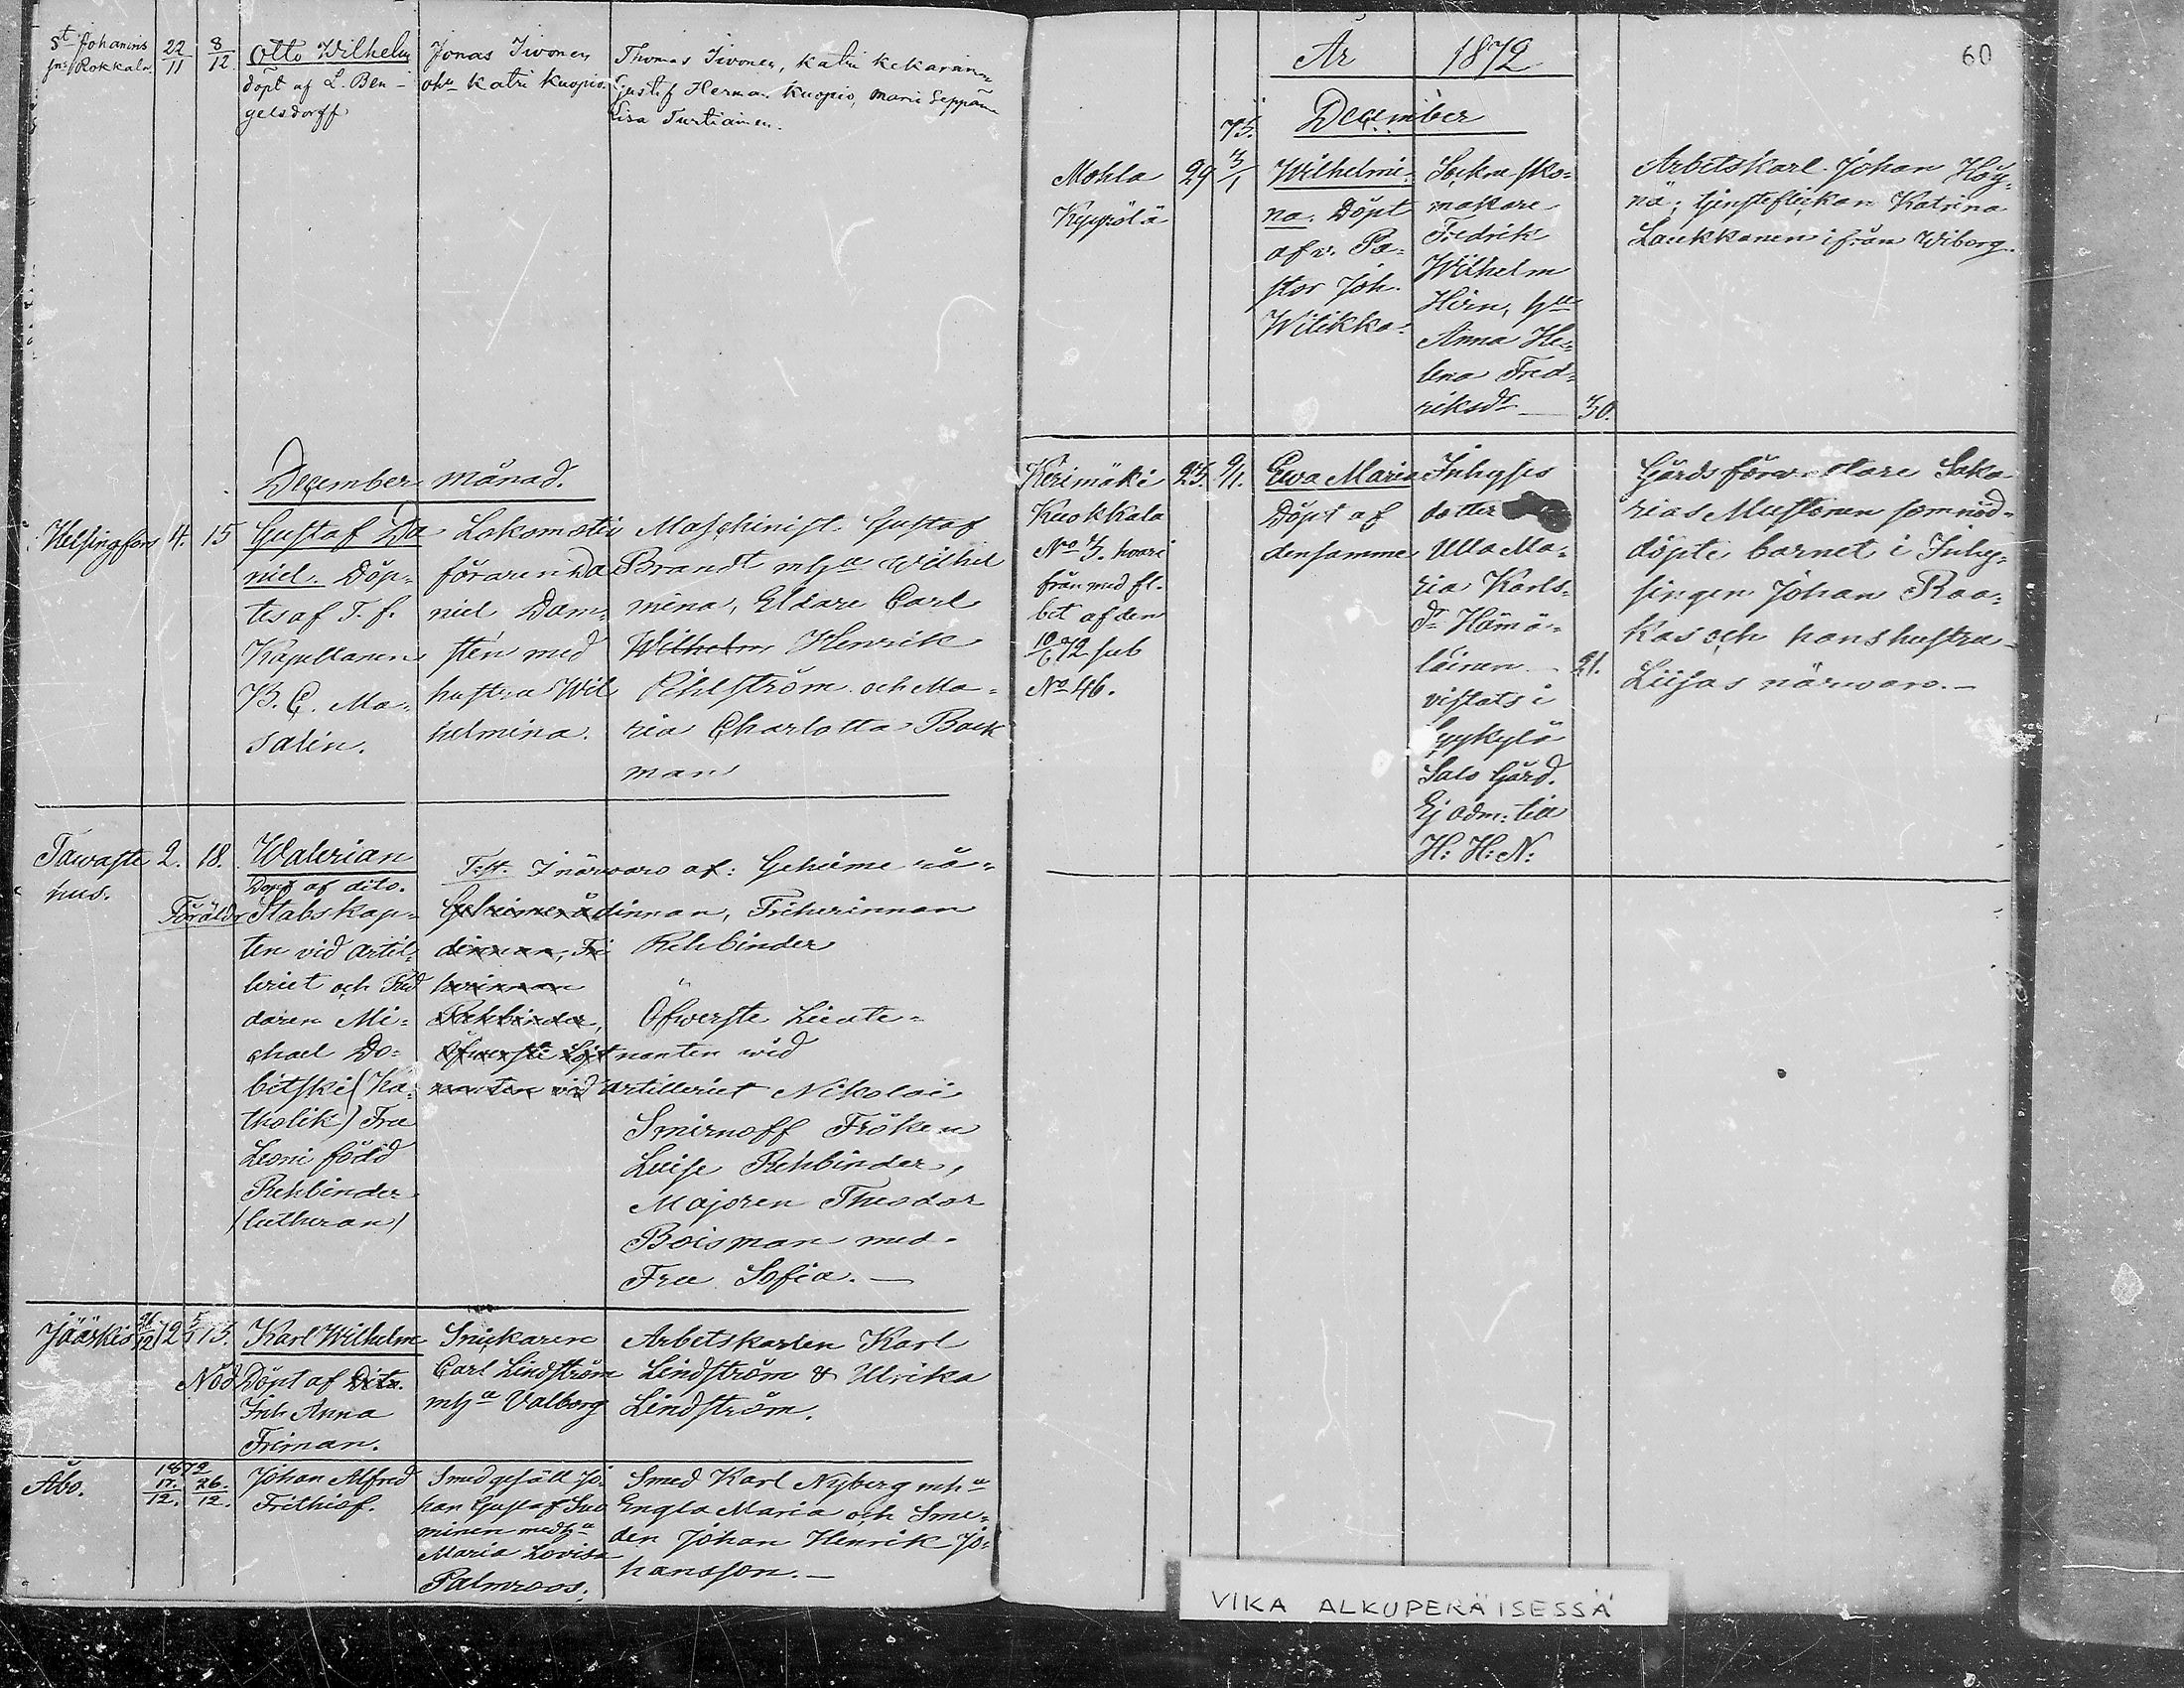 St Johannis
Rokkala
22/11
8/12
Otto Wilhelm
döpt af L. Ben-
gelsdorff
Jonas Iivonen
o hu Katri Kuopio.
Thomas Iivonen, Katri Kekarainen
Gustaf Herman Kuopio, Maria Seppänen
Lisa Turtiainen.
December månad.
Helsingfors
4.
15
Gustaf Da
niel. Döp-
tes af T. f.
Kapellanen
B. C. Ma-
salin.
Lokomotiv
föraren Da
niel Dam-
stén med
hustru Wil
helmina.
Maschinist Gustaf
Brandt m hu Wilhel
mina, Eldare Carl
Wilhelm Henrik
Pihlström och Ma-
ria Charlotta Back
man
Tawaste
hus.
2.
18.
Walerian
Döpt af dito.
Föräldr
Stabskap-
ten vid artil-
leriet och Rid
daren Mi-
chael Do-
bitski (Ka-
tholik) Fru
Leoni född
Rehbinder
(lutheran)
Test. I närvaro af: Geheime rå-
Geheimerådinnan, Friherinnan
dinnan, Fri
Rehbinder
herinnan
Rehbinder,
Öfwerste Liente-
Öfwerste Löjt
nanten wid
nanten vid
artilleriet Nikolai
Smirnoff Fröken
Luise Rehbinder,
Majoren Theodor
Boisman med
Fru Sofia.
Jääskis
72
73.
Nöd
Karl Wilhelm
Döpt af Dito.
Inh. Anna
Friman.
Snickaren
Carl Lindström
m hu Valborg
Arbetskarlen Karl
Lindström & Ulrika
Lindström.
Åbo.
1872
17./12.
26./12.
Johan Alfred
Frithiof.
Smedgesäll Jo-
han Gustaf Suo
minen med hu
Maria Lovisa
Palmroos.
Smed Karl Nyberg m hu
Engla Maria och Sme-
den Johan Henrik Jo-
hansson.
60
År 1872
73.
December
Mohla
Kyyrölä
29
Wilhelmi-
na. Döpt
af v. Pa-
stor Joh.
Wilikka.
Sockne sko-
makare
Fredrik
Wilhelm
Hirn, hu
Anna He-
lena Fred-
riksdr
30.
Arbetskarl Johan Höy-
nä; tjensteflickan Katrina
Laukkanen ifrån Wiborg.
Kerimäki
Kuokkala
No 3. hvari
från med fl.
bet af den
10/6 72 sub
No 46.
25.
9/1.
Ewa Maria
Döpt af
densamme
Inhyses
dotter
Ulla Ma-
ria Karls-
dr Hämä-
läinen
vistats i
Sykylö
Salo Gård.
Ej adm: till
H: H: N:
21.
Gårdsförvaltare Saka-
rias Mustonen som nöd-
döpte barnet i Inhy-
singen Johan Raa-
kas och hans hustru
Liisas närvaro.
VIKA ALKUPERÄISESSÄ